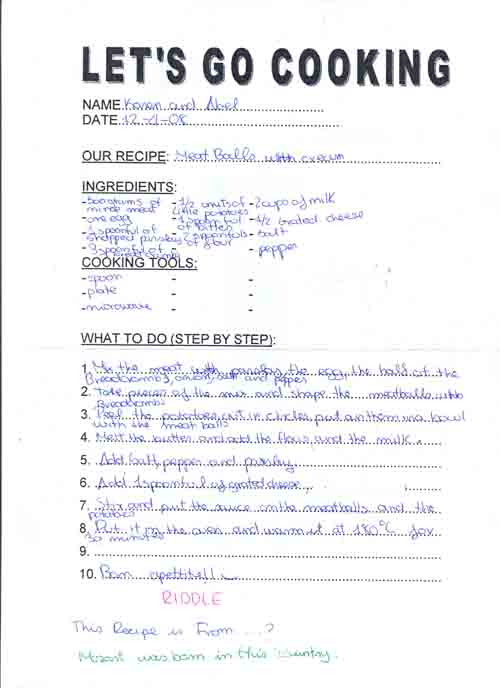 LET'S GO COOKING
NAME. Karen and Abel
DATE. 12-1-08
OUR RECIPE: Meat Balls with cream
INGREDIENTS:
-500 grams of mince meat -1/2 units of little potatoes -2 cups of milk
-one egg -1 spoonful of butter -1/2 grated cheese
-1 spoonful of chopped parsley -2 spoonfuls of flour -salt
-3 spoonful of - pepper
COOKING TOOLS:
-spoon - -
-plate - -
-microwave - -
WHAT TO DO (STEP BY STEP):
1. Mix the meat with parsley the egg, the half of the
Breadcrumbs, onion, salt and pepper
2. Take pieces of the mix and shape the meatballs with
Breadcrumbs
3. Peel the potatoes cut in circles put anthem in a bowl
with the meat balls
4. Melt the butter and add the flour and the milk.
5. Add salt, pepper and parsley
6. Add 1 spoonful of grated cheese.
7. Stir and put the sauce on the meatballs and the
potatoes
8. Put it on the oven and warm it at 180°C for
30 minutes
9.
10. Bom apettite!!
RIDDLE
This Recipe is From ....?
Mozart was born in this country.